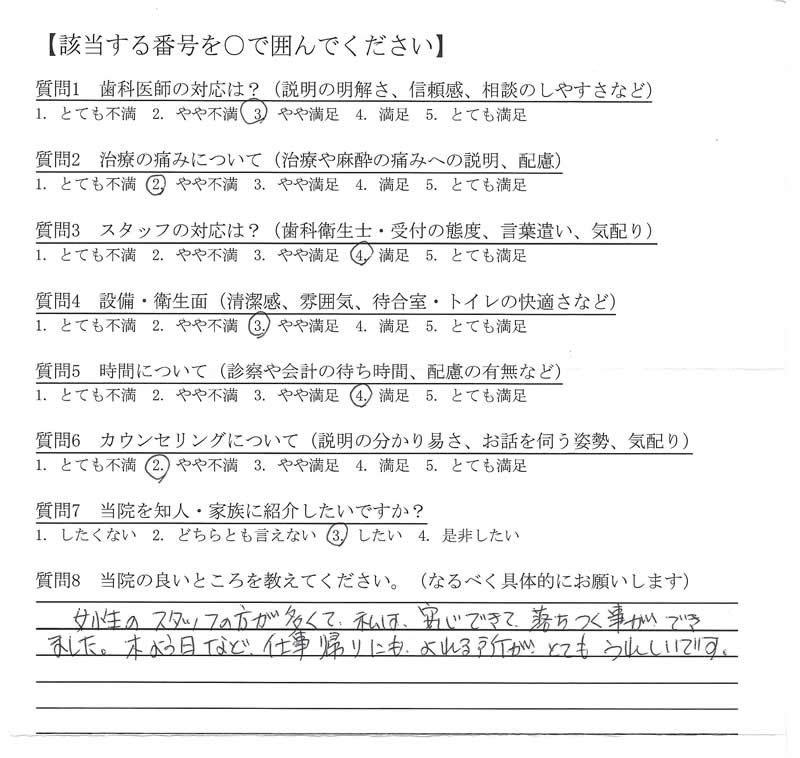 【該当する番号を○で囲んでください】
質問1 歯科医師の対応は？（説明の明解さ、信頼感、相談のしやすさなど）
1. とても不満 2. やや不満 3. やや満足 4. 満足 5. とても満足
質問2 治療の痛みについて（治療や麻酔の痛みへの説明、配慮）
1. とても不満 2. やや不満 3. やや満足 4. 満足 5. とても満足
質問3 スタッフの対応は？（歯科衛生士・受付の態度、言葉遣い、気配り）
1. とても不満 2. やや不満 3. やや満足 4. 満足 5. とても満足
質問4 設備・衛生面（清潔感、雰囲気、待合室・トイレの快適さなど）
1. とても不満 2. やや不満 3. やや満足 4. 満足 5. とても満足
質問5 時間について（診察や会計の待ち時間、配慮の有無など）
1. とても不満 2. やや不満 3. やや満足 4. 満足 5. とても満足
質問6 カウンセリングについて（説明の分かり易さ、お話を伺う姿勢、気配り）
1. とても不満 2. やや不満 3. やや満足 4. 満足 5. とても満足
質問7 当院を知人・家族に紹介したいですか？
1. したくない 2. どちらとも言えない 3. したい 4. 是非したい
質問8 当院の良いところを教えてください。（なるべく具体的にお願いします）
女性のスタッフの方が多くて、私は、安心できて、落ちつく事ができ
ました。木よう日など、仕事帰りにも、よれる所が、とてもうれしいです。